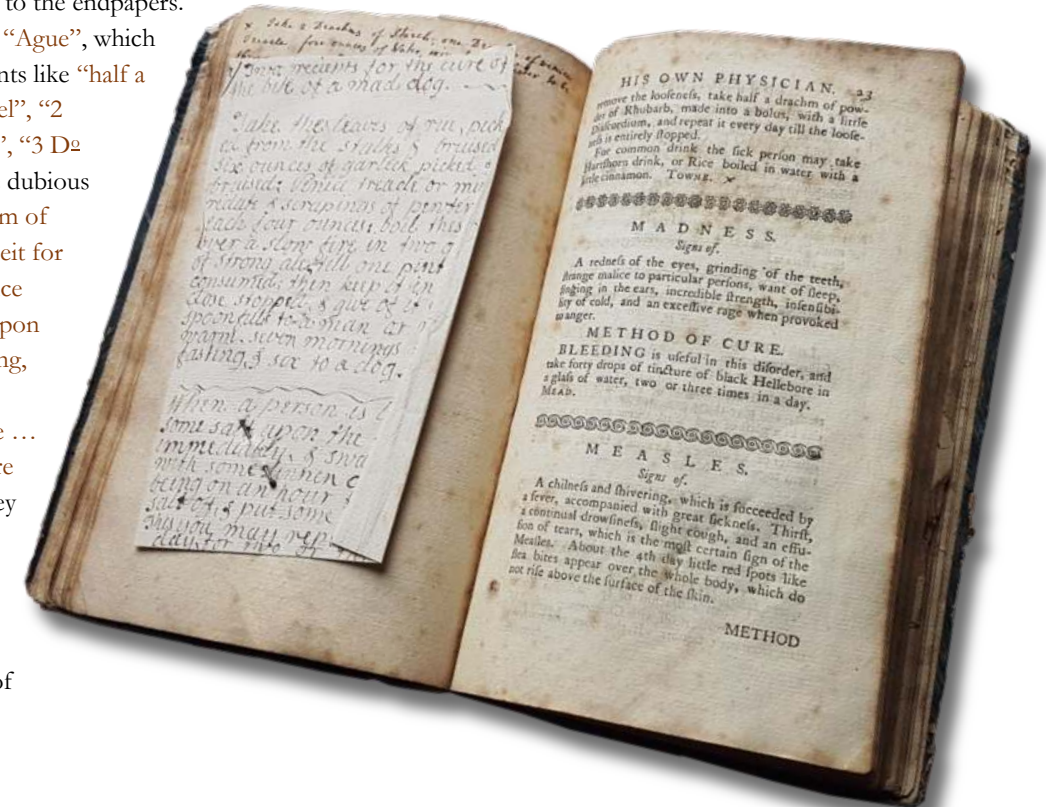 to the endpapers.
“Ague”, which
nts like “half a
el”, “2
”, “3 Dº
dubious
m of
eit for
ce
pon
ng,
e …
re
ey
of
x Take 2 Drachms of Starch, one
Treacle four ounces of
Two receipts for the cure of
the bite of a mad dog.
Take the leaves of rue, pick
ed from the stalks & bruised
six ounces of garlick picked &
bruised; Venice treacle or mi
redate & scrapings of pewter
each four ounces; boil this
over a slow fire in two q
of strong ale, till one pint
consumed; then keep it in
close stopped, & give of it
spoonfuls to a man or
warm. seven mornings
fasting, & six to a dog.
When a person is
some salt upon the
immediately, &
with some
being on an hour
salt off, & put some
This you may rep
day for two
HIS OWN PHYSICIAN. 23
remove the looſeneſs, take half a drachm of pow-
der of Rhubarb, made into a bolus, with a little
Diaſcordium, and repeat it every day till the looſe-
neſs is entirely ſtopped.
For common drink the ſick perſon may take
Hartſhorn drink, or Rice boiled in water with a
little cinnamon. TOWNE. x
MADNESS.
Signs of.
A redneſs of the eyes, grinding of the teeth,
ſtrange malice to particular perſons, want of ſleep,
ſinging in the ears, incredible ſtrength, inſenſibi-
lity of cold, and an exceſſive rage when provoked
to anger.
METHOD OF CURE.
BLEEDING is uſeful in this diſorder, and
take forty drops of tincture of black Hellebore in
a glaſs of water, two or three times in a day.
MEAD.
MEASLES.
Signs of.
A chilneſs and ſhivering, which is ſucceeded by
a fever, accompanied with great ſickneſs. Thirſt,
a continual drowſineſs, ſlight cough, and an effu-
ſion of tears, which is the moſt certain ſign of the
Meaſles. About the 4th day little red ſpots like
flea bites appear over the whole body, which do
not riſe above the ſurface of the ſkin.
METHOD